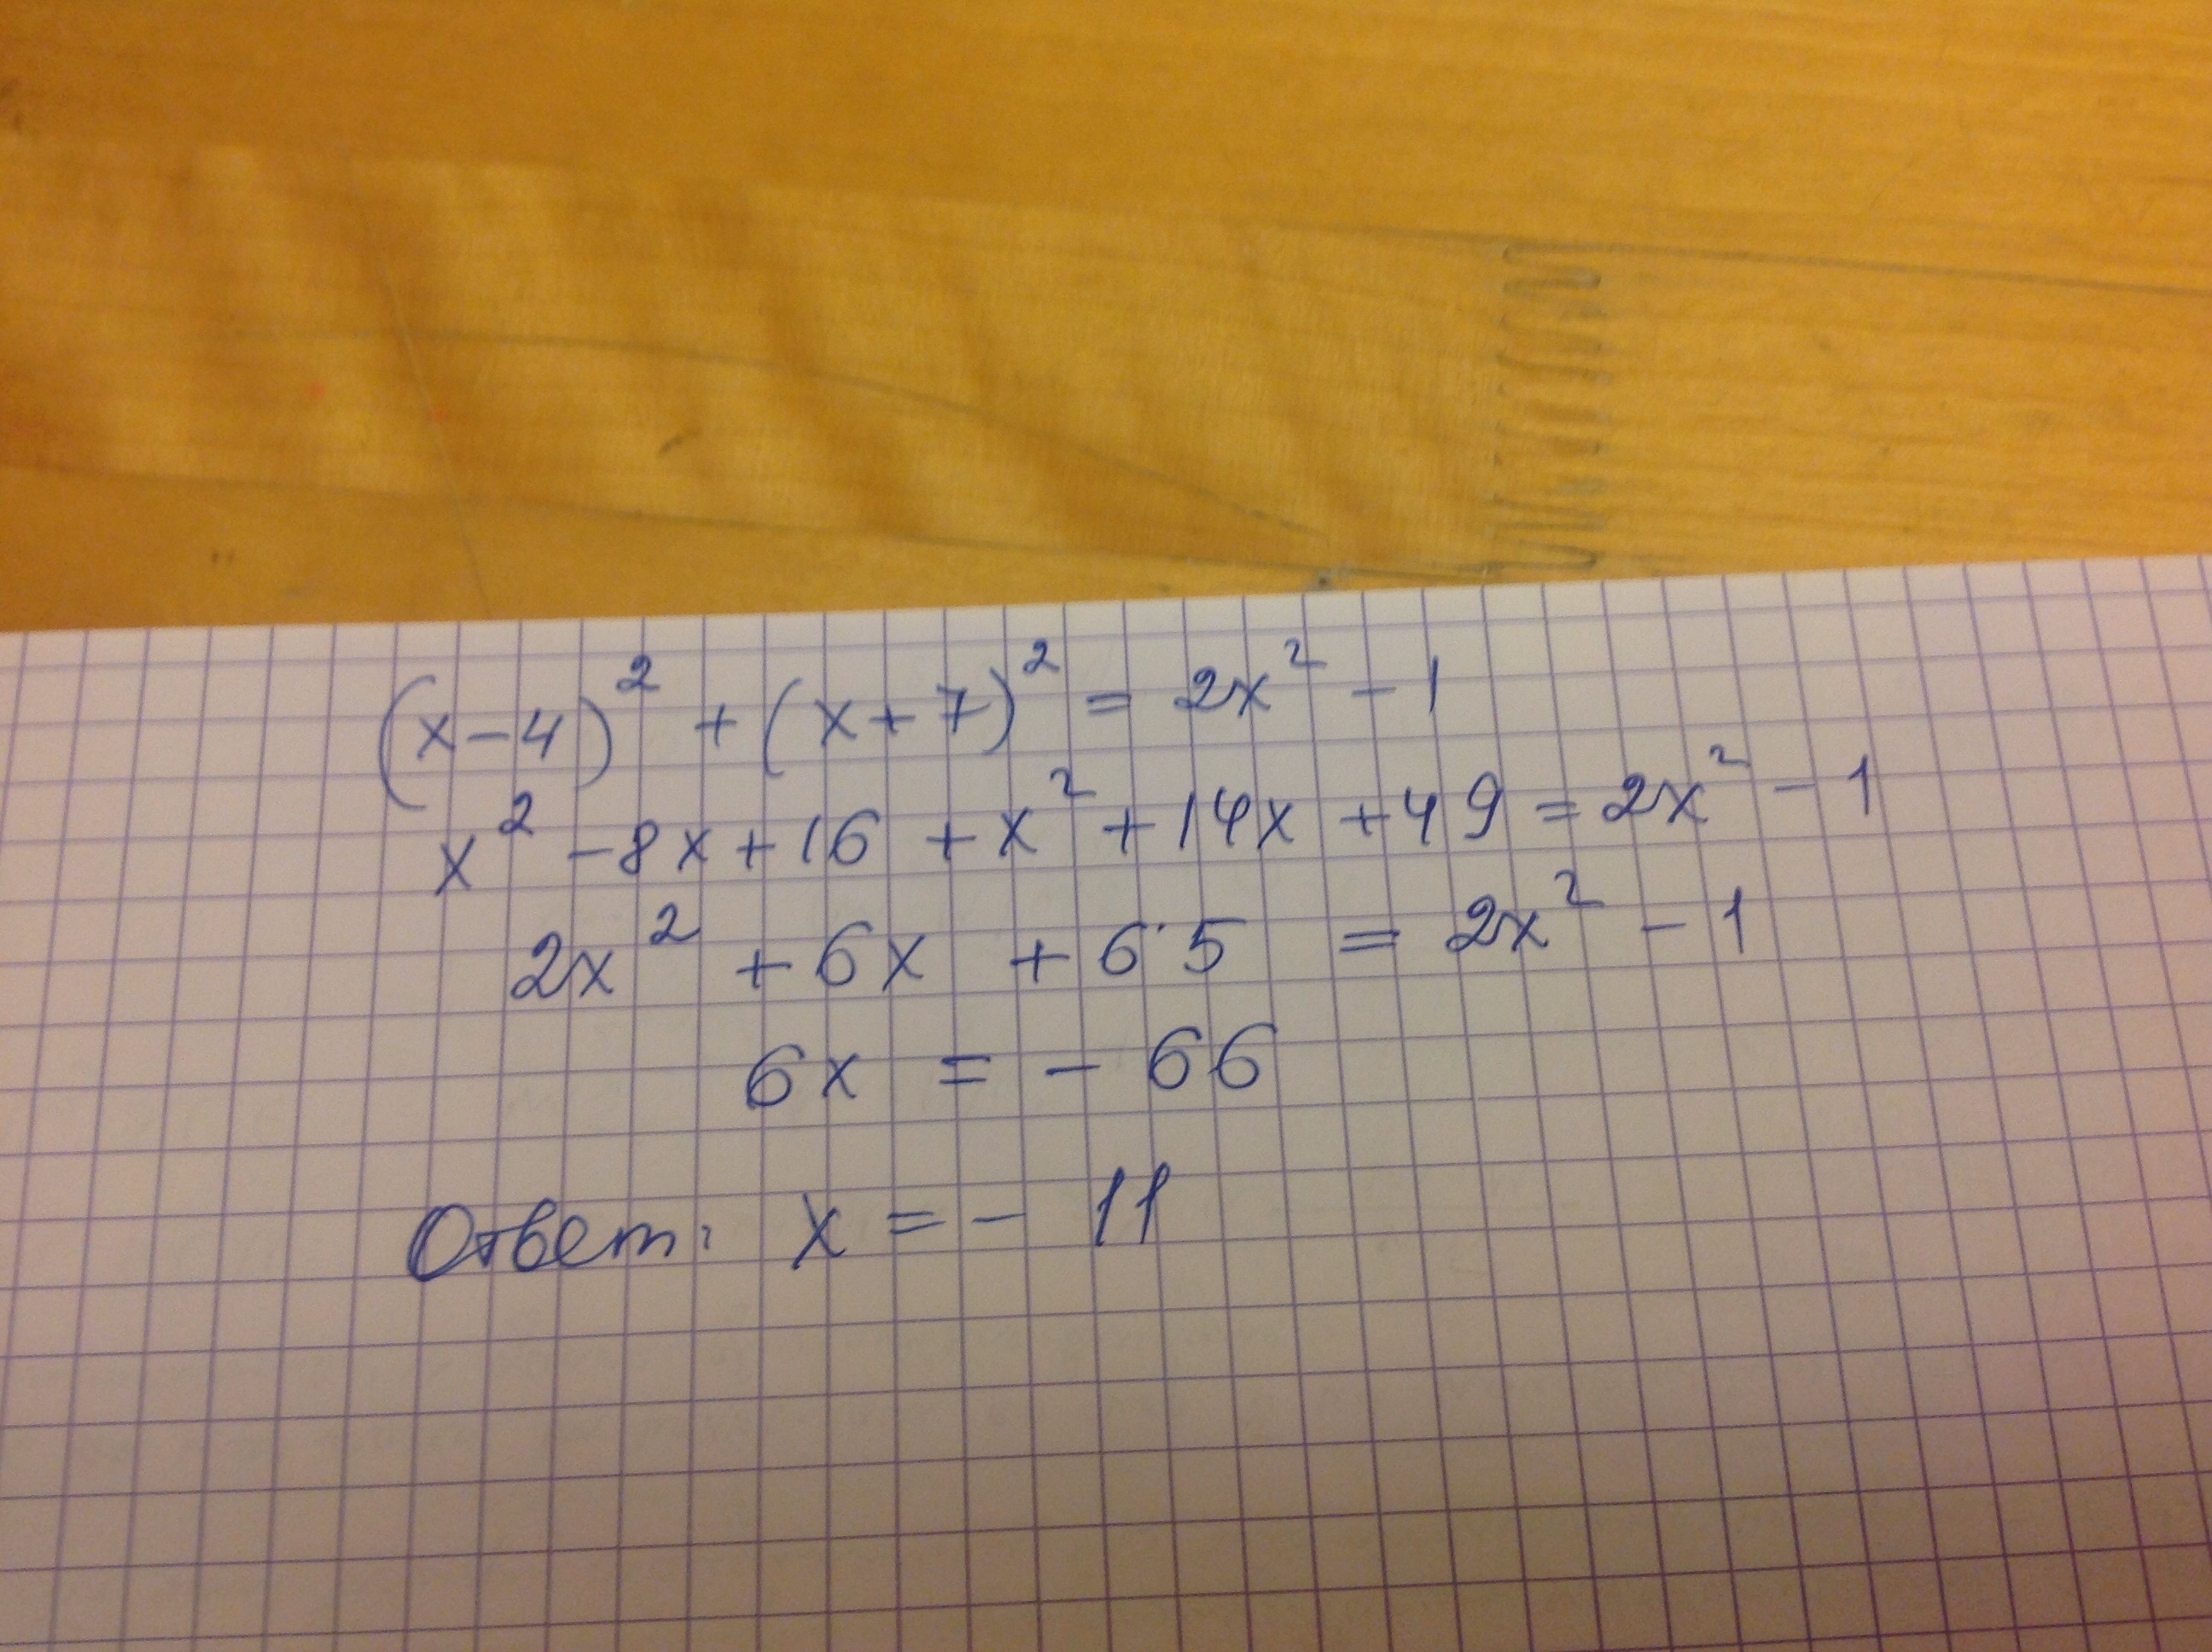 (x-4)² + (x+7)² = 2x² - 1
x² - 8x + 16 + x² + 14x + 49 = 2x² - 1
2x² + 6x + 65 = 2x² - 1
6x = - 66
Ответ: x = - 11